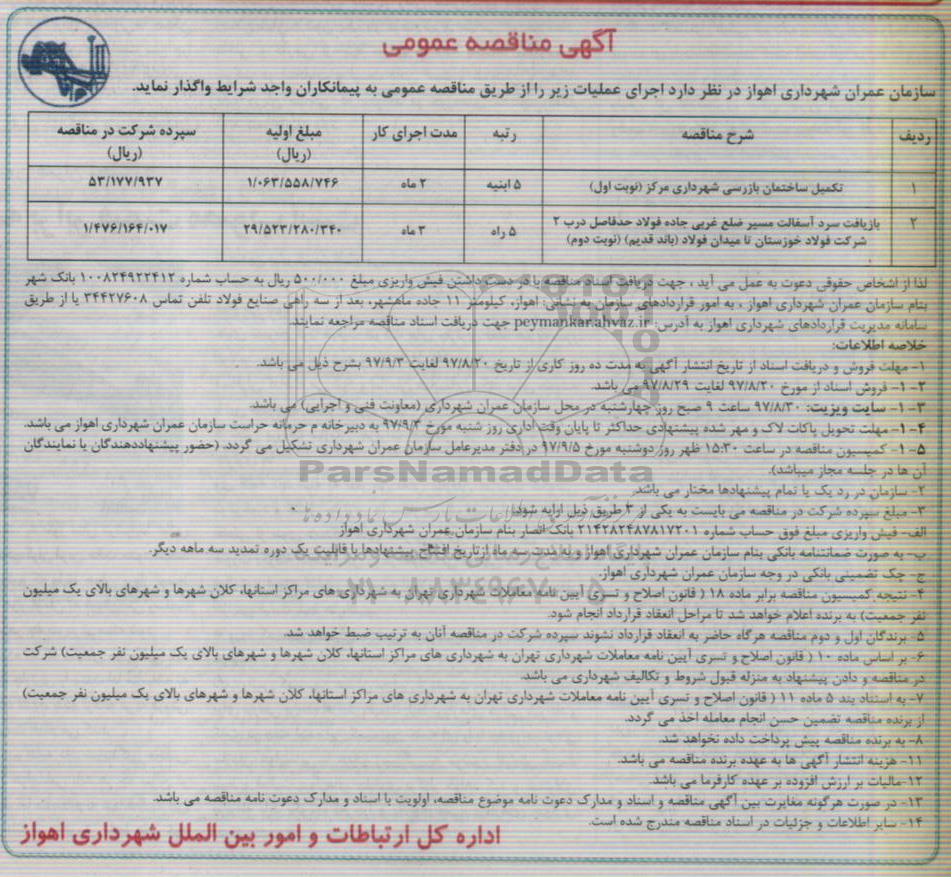 آگهی مناقصه عمومی
سازمان عمران شهرداری اهواز در نظر دارد اجرای عملیات زیر را از طریق مناقصه عمومی به پیمانکاران واجد شرایط واگذار نماید.
ردیف شرح مناقصه رتبه مدت اجرای کار مبلغ اولیه (ریال) سپرده شرکت در مناقصه (ریال)
۱ تکمیل ساختمان بازرسی شهرداری مرکز (نوبت اول) ۵ ابنیه ۲ ماه ۱/۰۶۳/۵۵۸/۷۴۶ ۵۳/۱۷۷/۹۳۷
۲ بازیافت سرد آسفالت مسیر ضلع غربی جاده فولاد حدفاصل درب ۲ شرکت فولاد خوزستان تا میدان فولاد (باند قدیم) (نوبت دوم) ۵ راه ۳ ماه ۲۹/۵۲۳/۲۸۰/۳۴۰ ۱/۴۷۶/۱۶۴/۰۱۷
لذا از اشخاص حقوقی دعوت به عمل می آید ، جهت دریافت اسناد مناقصه با در دست داشتن فیش واریزی مبلغ ۵۰۰/۰۰۰ ریال به حساب شماره ۱۰۰۸۲۴۹۲۲۴۱۲ بانک شهر
بنام سازمان عمران شهرداری اهواز ، به امور قراردادهای سازمان به نشانی: اهواز، کیلومتر ۱۱ جاده ماهشهر، بعد از سه راهی صنایع فولاد تلفن تماس ۳۴۴۲۷۶۰۸ یا از طریق
سامانه مدیریت قراردادهای شهرداری اهواز به آدرس: peymankar.ahvaz.ir جهت دریافت اسناد مناقصه مراجعه نمایند.
خلاصه اطلاعات:
۱- مهلت فروش و دریافت اسناد از تاریخ انتشار آگهی به مدت ده روز کاری از تاریخ ۹۷/۸/۲۰ لغایت ۹۷/۹/۳ بشرح ذیل می باشد.
۲-۱- فروش اسناد از مورخ ۹۷/۸/۲۰ لغایت ۹۷/۸/۲۹ می باشد.
۳-۱- سایت ویزیت: ۹۷/۸/۳۰ ساعت ۹ صبح روز چهارشنبه در محل سازمان عمران شهرداری (معاونت فنی و اجرایی) می باشد.
۴-۱- مهلت تحویل پاکات لاک و مهر شده پیشنهادی حداکثر تا پایان وقت اداری روز شنبه مورخ ۹۷/۹/۳ به دبیرخانه م حرمانه حراست سازمان عمران شهرداری اهواز می باشد.
۵-۱- کمیسیون مناقصه در ساعت ۱۵:۳۰ ظهر روز دوشنبه مورخ ۹۷/۹/۵ در دفتر مدیرعامل سازمان عمران شهرداری تشکیل می گردد. (حضور پیشنهاددهندگان یا نمایندگان
آن ها در جلسه مجاز میباشد).
۲- سازمان در رد یک یا تمام پیشنهادها مختار می باشد.
۳- مبلغ سپرده شرکت در مناقصه می بایست به یکی از ۳ طریق ذیل ارایه شود:
الف- فیش واریزی مبلغ فوق حساب شماره ۲۱۴۲۸۲۴۸۷۸۱۷۲۰۱ بانک انصار بنام سازمان عمران شهرداری اهواز
ب- به صورت ضمانتنامه بانکی بنام سازمان عمران شهرداری اهواز و به مدت سه ماه از تاریخ افتتاح پیشنهادها با قابلیت یک دوره تمدید سه ماهه دیگر.
ج- چک تضمینی بانکی در وجه سازمان عمران شهرداری اهواز.
۴- نتیجه کمیسیون مناقصه برابر ماده ۱۸ ( قانون اصلاح و تسری آیین نامه معاملات شهرداری تهران به شهرداری های مراکز استانها، کلان شهرها و شهرهای بالای یک میلیون
نفر جمعیت) به برنده اعلام خواهد شد تا مراحل انعقاد قرارداد انجام شود.
۵- برندگان اول و دوم مناقصه هرگاه حاضر به انعقاد قرارداد نشوند سپرده شرکت در مناقصه آنان به ترتیب ضبط خواهد شد.
۶- بر اساس ماده ۱۰ ( قانون اصلاح و تسری آیین نامه معاملات شهرداری تهران به شهرداری های مراکز استانها، کلان شهرها و شهرهای بالای یک میلیون نفر جمعیت) شرکت
در مناقصه و دادن پیشنهاد به منزله قبول شروط و تکالیف شهرداری می باشد.
۷- به استناد بند ۵ ماده ۱۱ ( قانون اصلاح و تسری آیین نامه معاملات شهرداری تهران به شهرداری های مراکز استانها، کلان شهرها و شهرهای بالای یک میلیون نفر جمعیت)
از برنده مناقصه تضمین حسن انجام معامله اخذ می گردد.
۸- به برنده مناقصه پیش پرداخت داده نخواهد شد.
۱۱- هزینه انتشار آگهی ها به عهده برنده مناقصه می باشد.
۱۲-مالیات بر ارزش افزوده بر عهده کارفرما می باشد.
۱۳- در صورت هرگونه مغایرت بین آگهی مناقصه و اسناد و مدارک دعوت نامه موضوع مناقصه، اولویت با اسناد و مدارک دعوت نامه مناقصه می باشد.
۱۴- سایر اطلاعات و جزئیات در اسناد مناقصه مندرج شده است.
اداره کل ارتباطات و امور بین الملل شهرداری اهواز
ParsNamadData